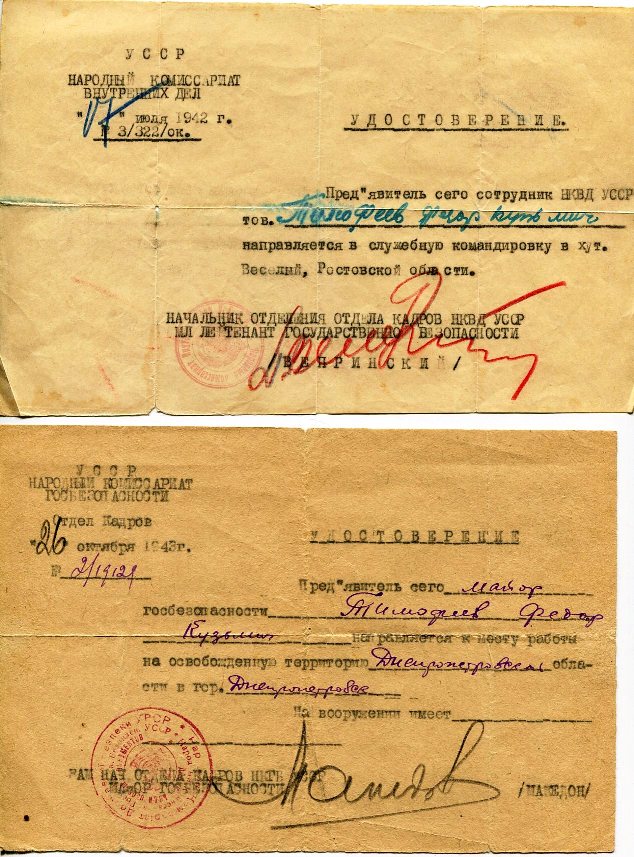 У С С Р
НАРОДНЫЙ КОМИССАРИАТ
ВНУТРЕННИХ ДЕЛ
"17" июля 1942 г.
№ 3/322/ок.
У Д О С Т О В Е Р Е Н И Е.
Пред"явитель сего сотрудник НКВД УССР
тов. Тимофеев Федор Кузьмич
направляется в служебную командировку в хут.
Веселый, Ростовской области.
НАЧАЛЬНИК ОТДЕЛЕНИЯ ОТДЕЛА КАДРОВ НКВД УССР
МЛ ЛЕЙТЕНАНТ ГОСУДАРСТВЕННОЙ БЕЗОПАСНОСТИ
У С С Р
НАРОДНЫЙ КОМИССАРИАТ
ГОСБЕЗОПАСНОСТИ
Отдел Кадров
"26 октября 1943г.
№ 2/19129
У Д О С Т О В Е Р Е Н И Е
Пред"явитель сего майор
госбезопасности Тимофеев Федор
Кузьмич направляется к месту работы
на освобожденную территорию Днепропетровской обла-
сти в гор. Днепропетровск
На вооружении имеет
ЗАМ НАЧ ОТДЕЛА КАДРОВ НКГБ УССР
МАЙОР ГОСБЕЗОПАСНОСТИ /МАКЕДОН/